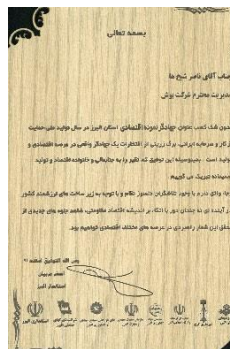 بسمه تعالی
جناب آقای ناصر شیخ ها
مدیریت محترم شرکت پوش
بدون شک کسب عنوان جهادگر نمونه اقتصادی استان البرز در سال تولید ملی حمایت
کار و سرمایه ایرانی، برگ زرینی از افتخارات یک جهادگر واقعی در عرصه اقتصادی و
تولید است. بدینوسیله این توفیق کم نظیر را به جنابعالی و خانواده اقتصاد و تولید
صمیمانه تبریک می گوییم
رجاء واثق دارم با وجود تلاشگران دلسوز نظام و با توجه به زیر ساخت های ارزشمند کشور
در آینده ای نه چندان دور با اتکاء بر اندیشه اقتصاد مقاومتی، شاهد جلوه های جدیدی از
تحقق این شعار راهبردی در عرصه های مختلف اقتصادی خواهیم بود.
ومن الله التوفیق
استاندار البرز
استانداری البرز